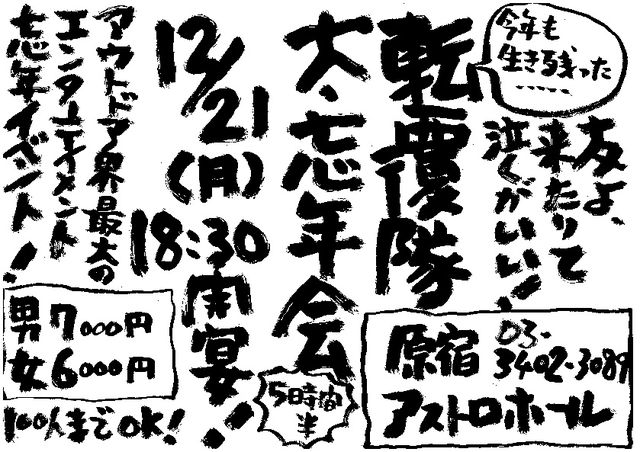 今年も
生き残った
‥‥‥
友よ、
来たりて
泣くがいい!
転覆隊
大・忘年会
12/21
(月)
18:30
開宴!
5時間
半
アウトドア界最大の
エンターテイメント
忘年イベント!
男7000円
女6000円
100人までOK!
原宿 03-3402-3089
アストロホール